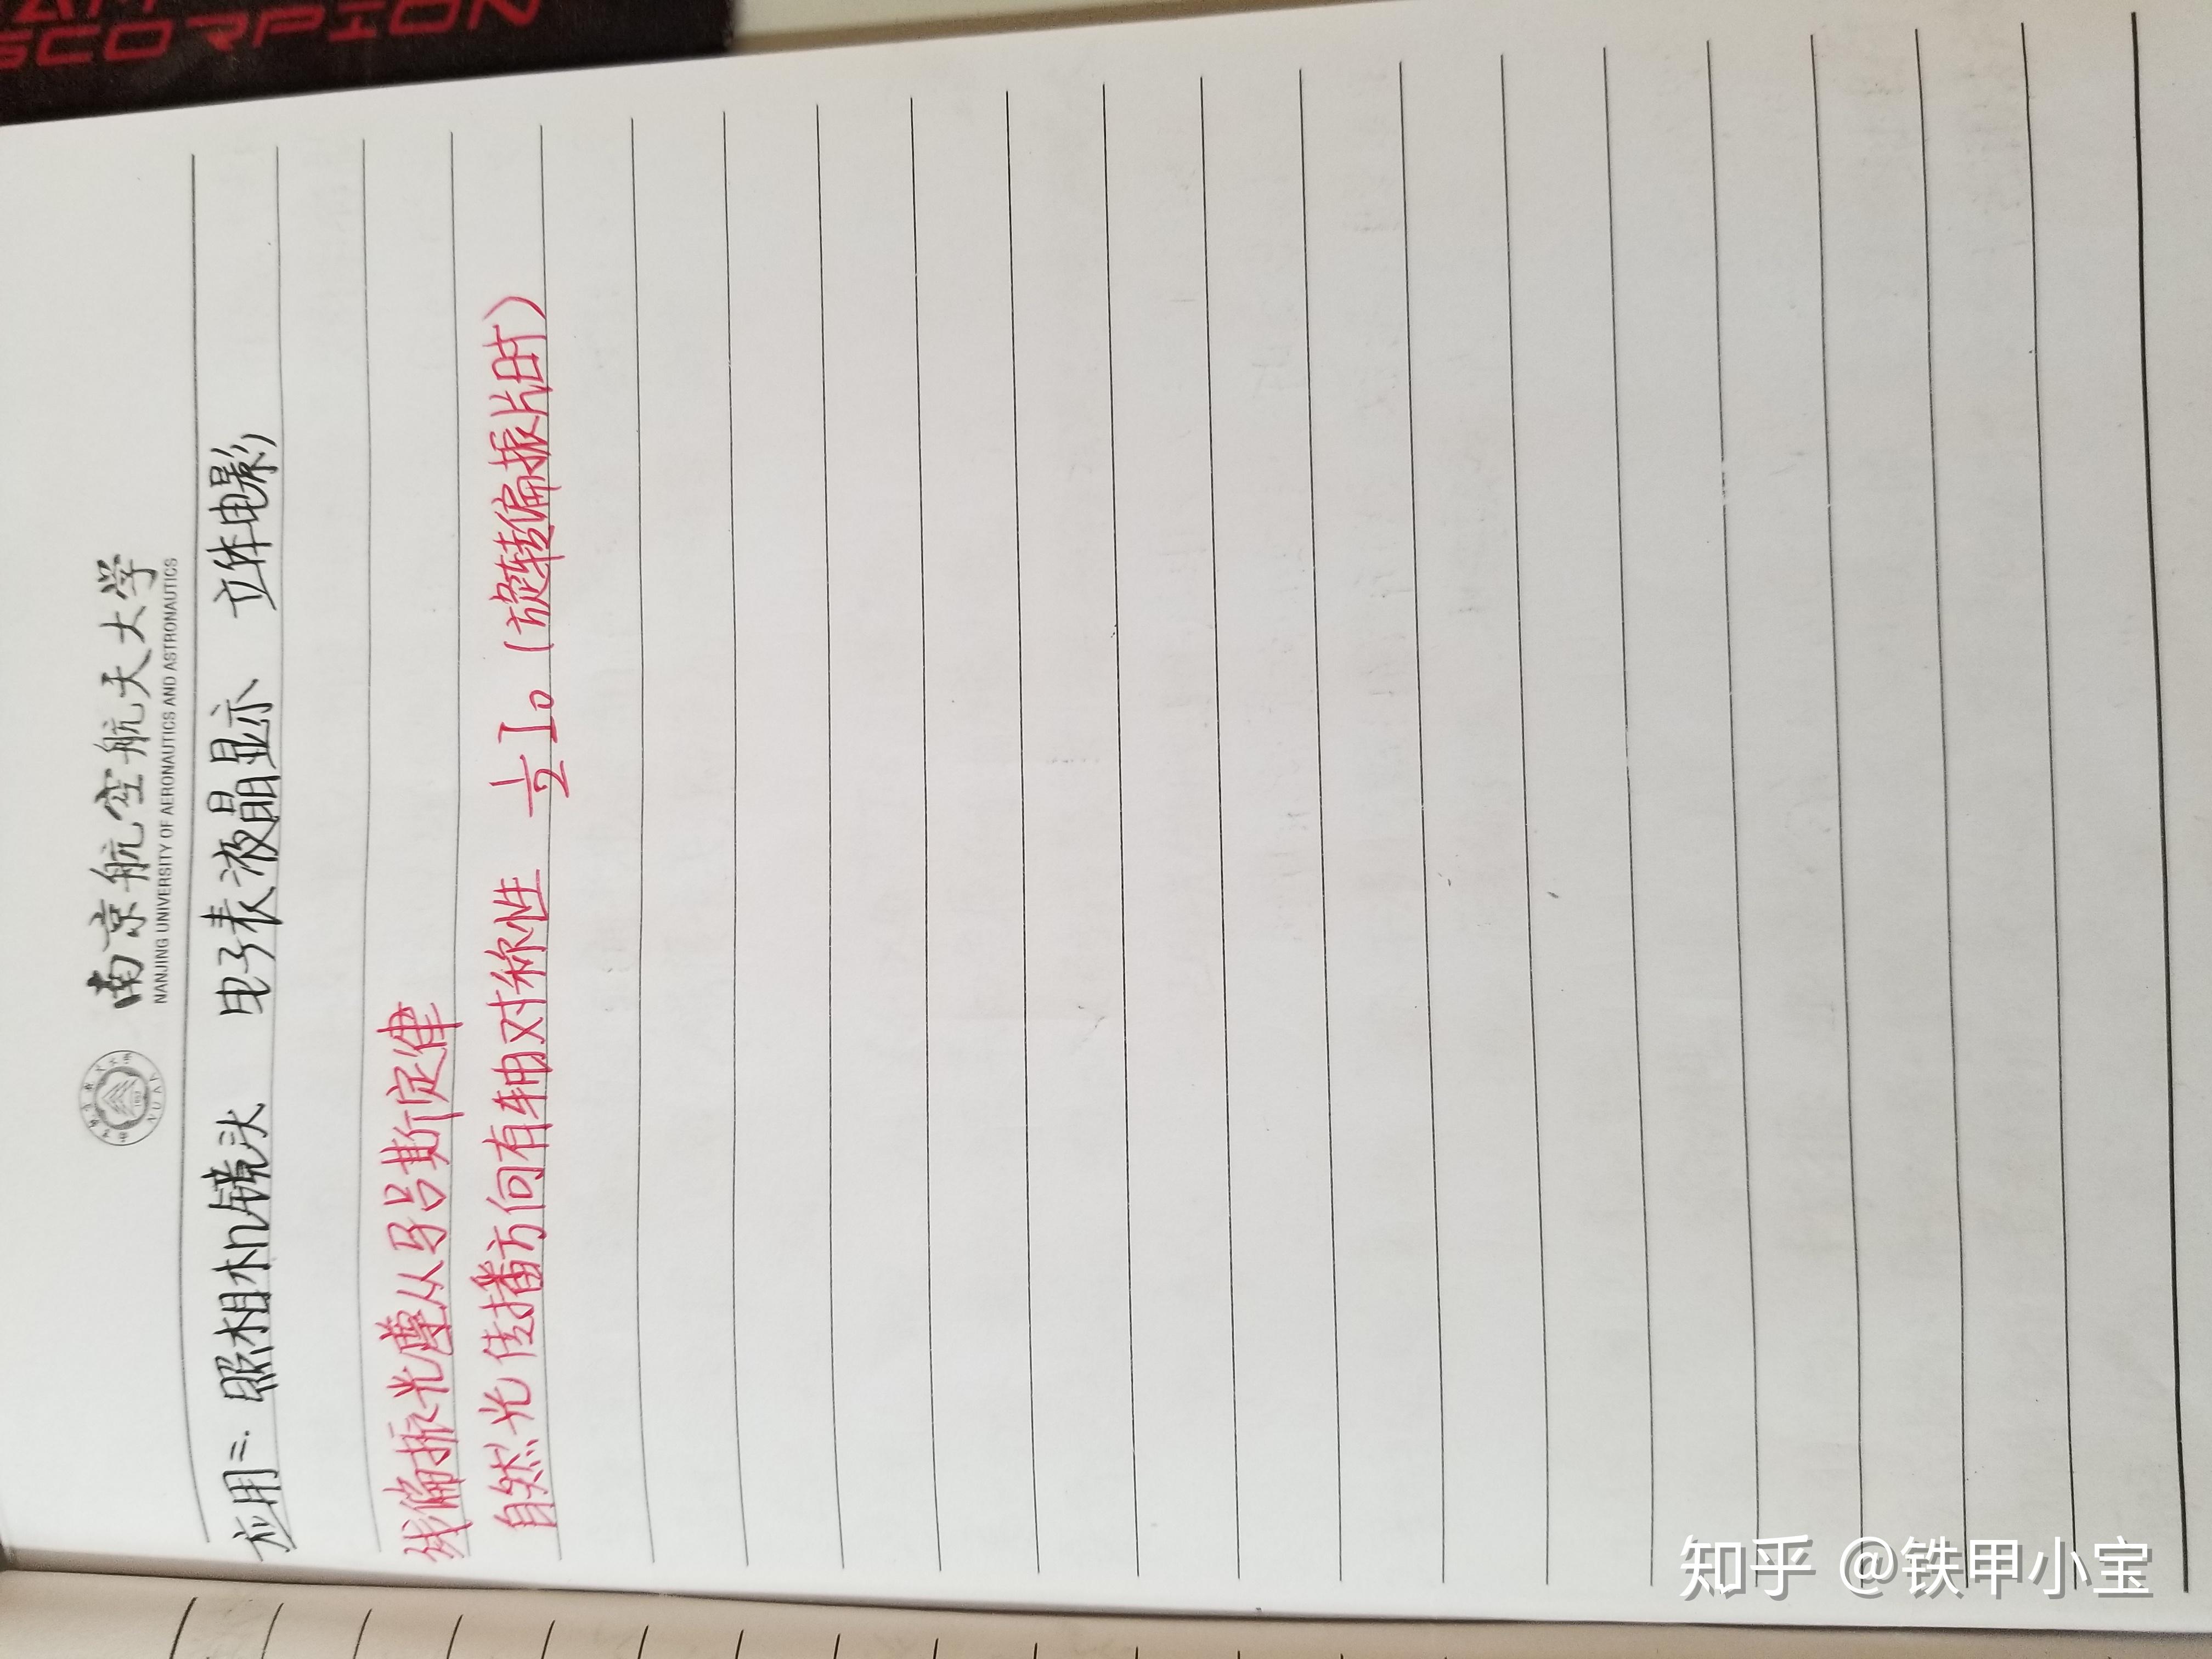 南京航空航天大学
NANJING UNIVERSITY OF AERONAUTICS AND ASTRONAUTICS
应用三. 照相机镜头 电子表液晶显示 立体电影
线偏振光遵从马吕斯定律
自然光 传播方向有轴对称性 1/2 I₀ (旋转偏振片时)
SCORPION
知乎 @铁甲小宝